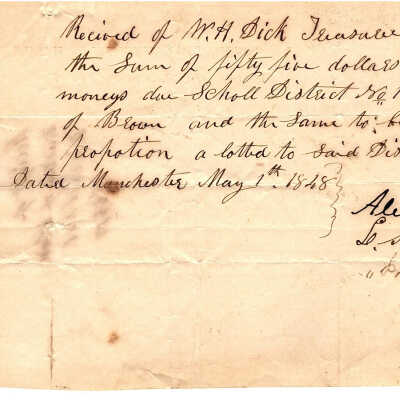 Recived of W.H. Dick Treasure
the Sum of fifty five dollars
moneys due Scholl District No 1
of Brown and the Same to b
propotion a lotted to said Dis
Dated Manchester May 1th 1848
Ale